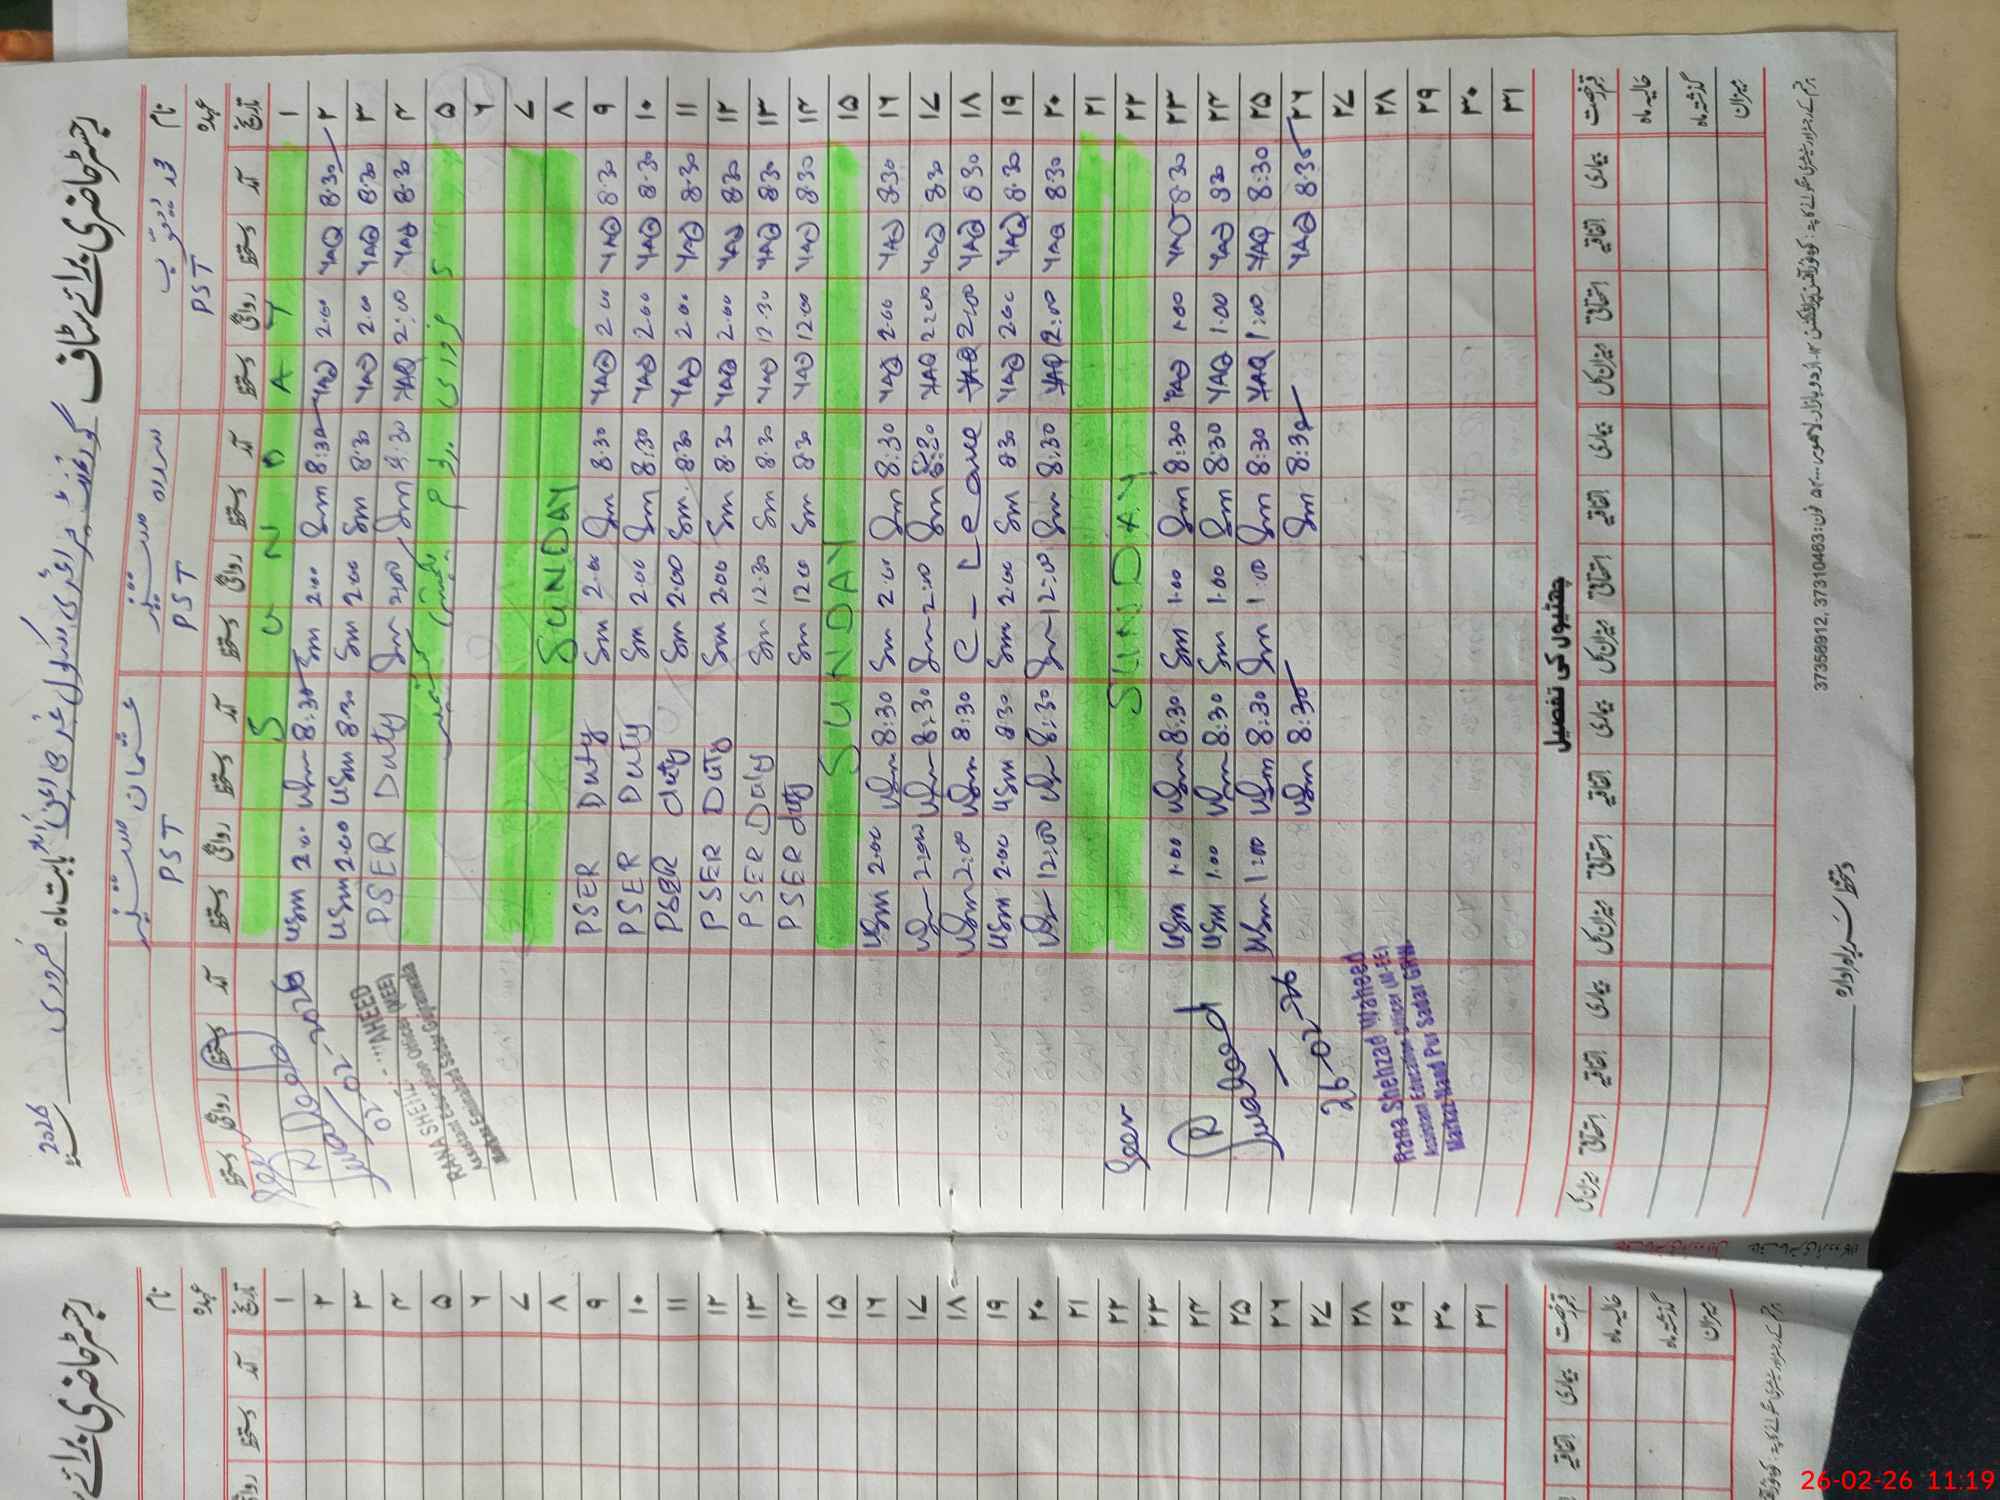 رجسٹر حاضری برائے سٹاف گورنمنٹ پرائمری سکول بابت ماہ فروری 2026
نام محمد یعقوب سدرہ عثمان
عہدہ PST PST PST
تاریخ آمد دستخط روانگی دستخط آمد دستخط روانگی دستخط آمد دستخط روانگی دستخط آمد دستخط روانگی دستخط
۱ SUNDAY
۲ 8:30 YAQ 2:00 YAQ 8:30 Sm 2:00 Sm 8:30 Usm 2:00 Usm
۳ 8:30 YAQ 2:00 YAQ 8:30 Sm 2:00 Sm 8:30 Usm 2:00 Usm
۴ 8:30 YAQ 2:00 YAQ 8:30 Sm 2:00 Sm PSER Duty
۵ 5 فروری یوم کشمیر
۶
۷
۸ SUNDAY
۹ 8:30 YAQ 2:00 YAQ 8:30 Sm 2:00 Sm PSER Duty
۱۰ 8:30 YAQ 2:00 YAQ 8:30 Sm 2:00 Sm PSER Duty
۱۱ 8:30 YAQ 2:00 YAQ 8:30 Sm 2:00 Sm PSER duty
۱۲ 8:30 YAQ 2:00 YAQ 8:30 Sm 2:00 Sm PSER Duty
۱۳ 8:30 YAQ 12:30 YAQ 8:30 Sm 12:30 Sm PSER Duty
۱۴ 8:30 YAQ 12:00 YAQ 8:30 Sm 12:00 Sm PSER duty
۱۵ SUNDAY
۱۶ 8:30 YAQ 2:00 YAQ 8:30 Sm 2:00 Sm 8:30 Usm 2:00 Usm
۱۷ 8:30 YAQ 2:00 YAQ 8:30 Sm 2:00 Sm 8:30 Usm 2:00 Usm
۱۸ 8:30 YAQ 2:00 YAQ C-Leave 8:30 Usm 2:00 Usm
۱۹ 8:30 YAQ 2:00 YAQ 8:30 Sm 2:00 Sm 8:30 Usm 2:00 Usm
۲۰ 8:30 YAQ 12:00 YAQ 8:30 Sm 12:00 Sm 8:30 Usm 12:00 Usm
۲۱
۲۲ SUNDAY
۲۳ 8:30 YAQ 1:00 YAQ 8:30 Sm 1:00 Sm 8:30 Usm 1:00 Usm
۲۴ 8:30 YAQ 1:00 YAQ 8:30 Sm 1:00 Sm 8:30 Usm 1:00 Usm
۲۵ 8:30 YAQ 1:00 YAQ 8:30 Sm 1:00 Sm 8:30 Usm 1:00 Usm
۲۶ 8:30 YAQ 8:30 Sm 8:30 Usm
۲۷
۲۸
۲۹
۳۰
۳۱
02-02-2026
RANA SHEHZAD WAHEED
Assistant Education Officer (MEE)
Markaz Eminabad Sadar Gujranwala
Seen
26-02-26
Rana Shehzad Waheed
Assistant Education Officer (M-EE)
Markaz Nand Pur Sadar GRW
چھٹیوں کی تفصیل
قسم رخصت بیماری اتفاقیہ استحقاقی میزان کل بیماری اتفاقیہ استحقاقی میزان کل بیماری اتفاقیہ استحقاقی میزان کل بیماری اتفاقیہ استحقاقی میزان کل
حالیہ ماہ
گذشتہ ماہ
میزان
دستخط سربراہ ادارہ
37358912, 37310463
رجسٹر حاضری برائے
نام
عہدہ
تاریخ آمد دستخط روانگی
۱
۲
۳
۴
۵
۶
۷
۸
۹
۱۰
۱۱
۱۲
۱۳
۱۴
۱۵
۱۶
۱۷
۱۸
۱۹
۲۰
۲۱
۲۲
۲۳
۲۴
۲۵
۲۶
۲۷
۲۸
۲۹
۳۰
۳۱
قسم رخصت بیماری اتفاقیہ
حالیہ ماہ
گذشتہ ماہ
میزان
26-02-26 11:19